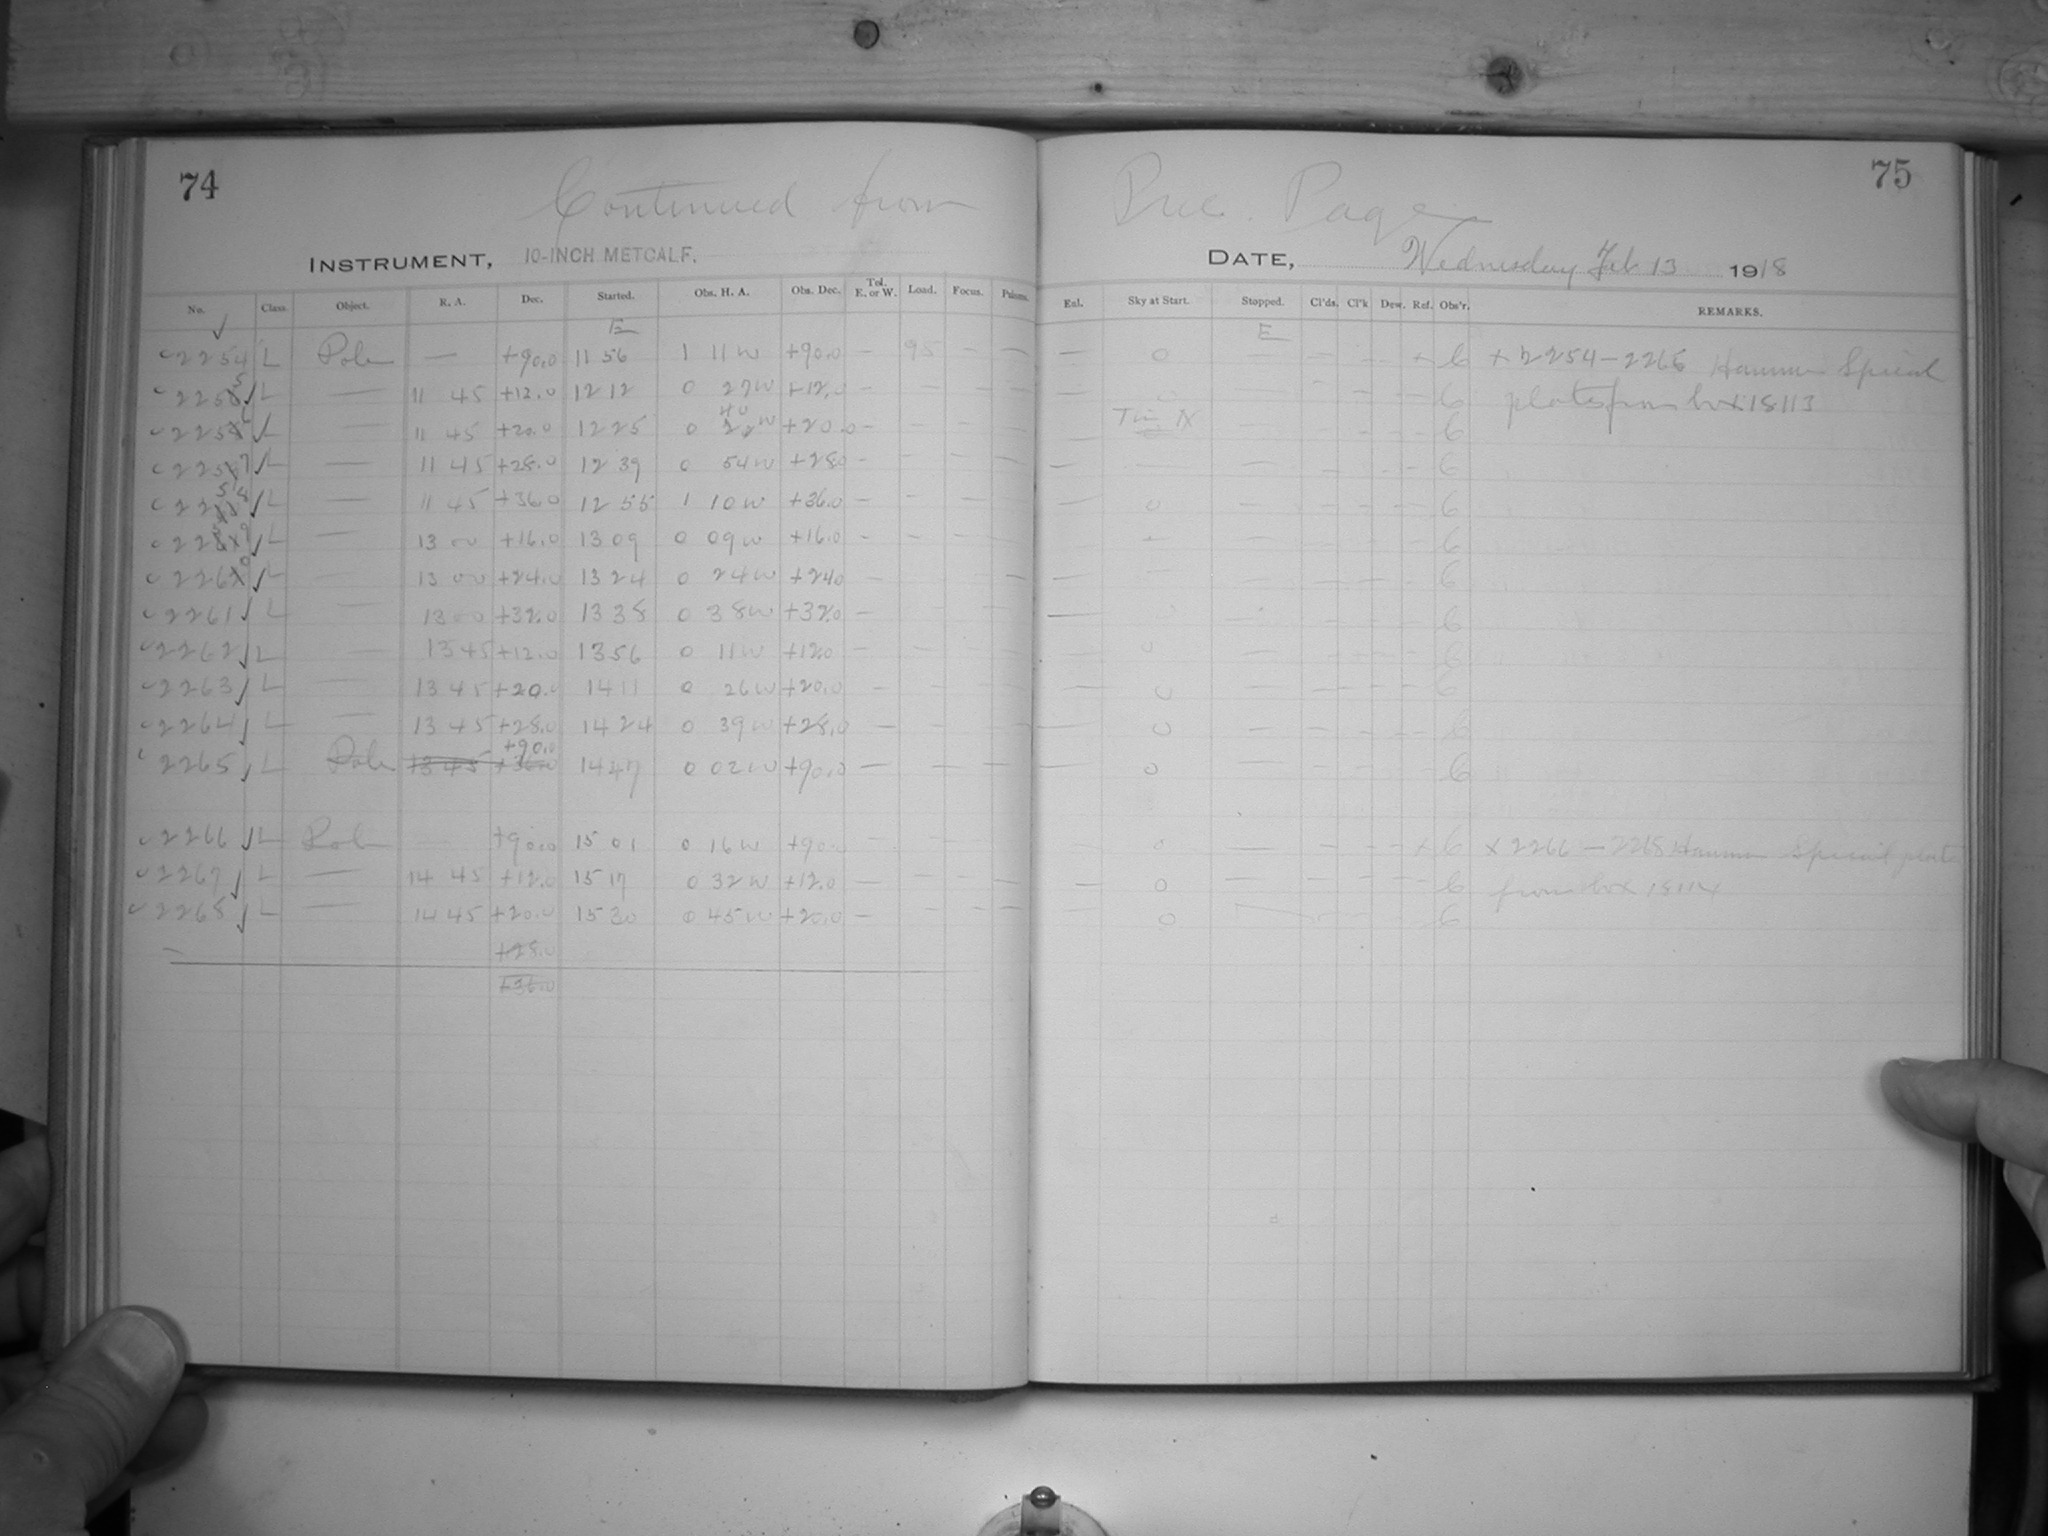 74
75
Continued from Prec. Page
INSTRUMENT, 10-INCH METCALF.
DATE, Wednesday Feb 13 1918
No. Class. Object. R. A. Dec. Started. Obs. H. A. Obs. Dec. Tel. E. or W. Load. Focus. Eal. Sky at Start. Stopped. Cl'ds. Cl'k Dew. Ref. Obs'r. REMARKS.
E E
2254 L Pole — +90.0 11 56 1 11 W +90.0 — 95 — — — 0 — — — + 6 + 2254-2265 Hammer Special
2255 L — 11 45 +12.0 12 12 0 27 W +12.0 — 6 plates from box 18113
2256 L — 11 45 +20.0 12 25 0 40 W +20.0 — 6
2257 L — 11 45 +28.0 12 39 0 54 W +28.0 — 6
2258 L — 11 45 +36.0 12 55 1 10 W +36.0 — 0 6
2259 L — 13 00 +16.0 13 09 0 09 W +16.0 — 6
2260 L — 13 00 +24.0 13 24 0 24 W +24.0 — 6
2261 L — 13 00 +32.0 13 38 0 38 W +32.0 — 6
2262 L — 13 45 +12.0 13 56 0 11 W +12.0 — 0 6
2263 L — 13 45 +20.0 14 11 0 26 W +20.0 — 0 6
2264 L — 13 45 +28.0 14 24 0 39 W +28.0 — 0 6
+90.0
2265 L Pole 13 45 +36.0 14 47 0 02 W +90.0 — 0 6
2266 L Pole +90.0 15 01 0 16 W +90.0 — 0 — — — + 6 x 2266-2268 Hammer Special plates
2267 L — 14 45 +12.0 15 17 0 32 W +12.0 — 0 6 from box 18114
2268 L — 14 45 +20.0 15 30 0 45 W +20.0 — 0 6
+28.0
+36.0